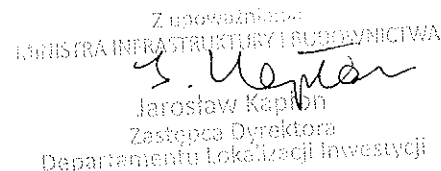 Z upoważnienia
MINISTRA INFRASTRUKTURY I BUDOWNICTWA
J. Kapłon
Jarosław Kapłon
Zastępca Dyrektora
Departamentu Lokalizacji Inwestycji